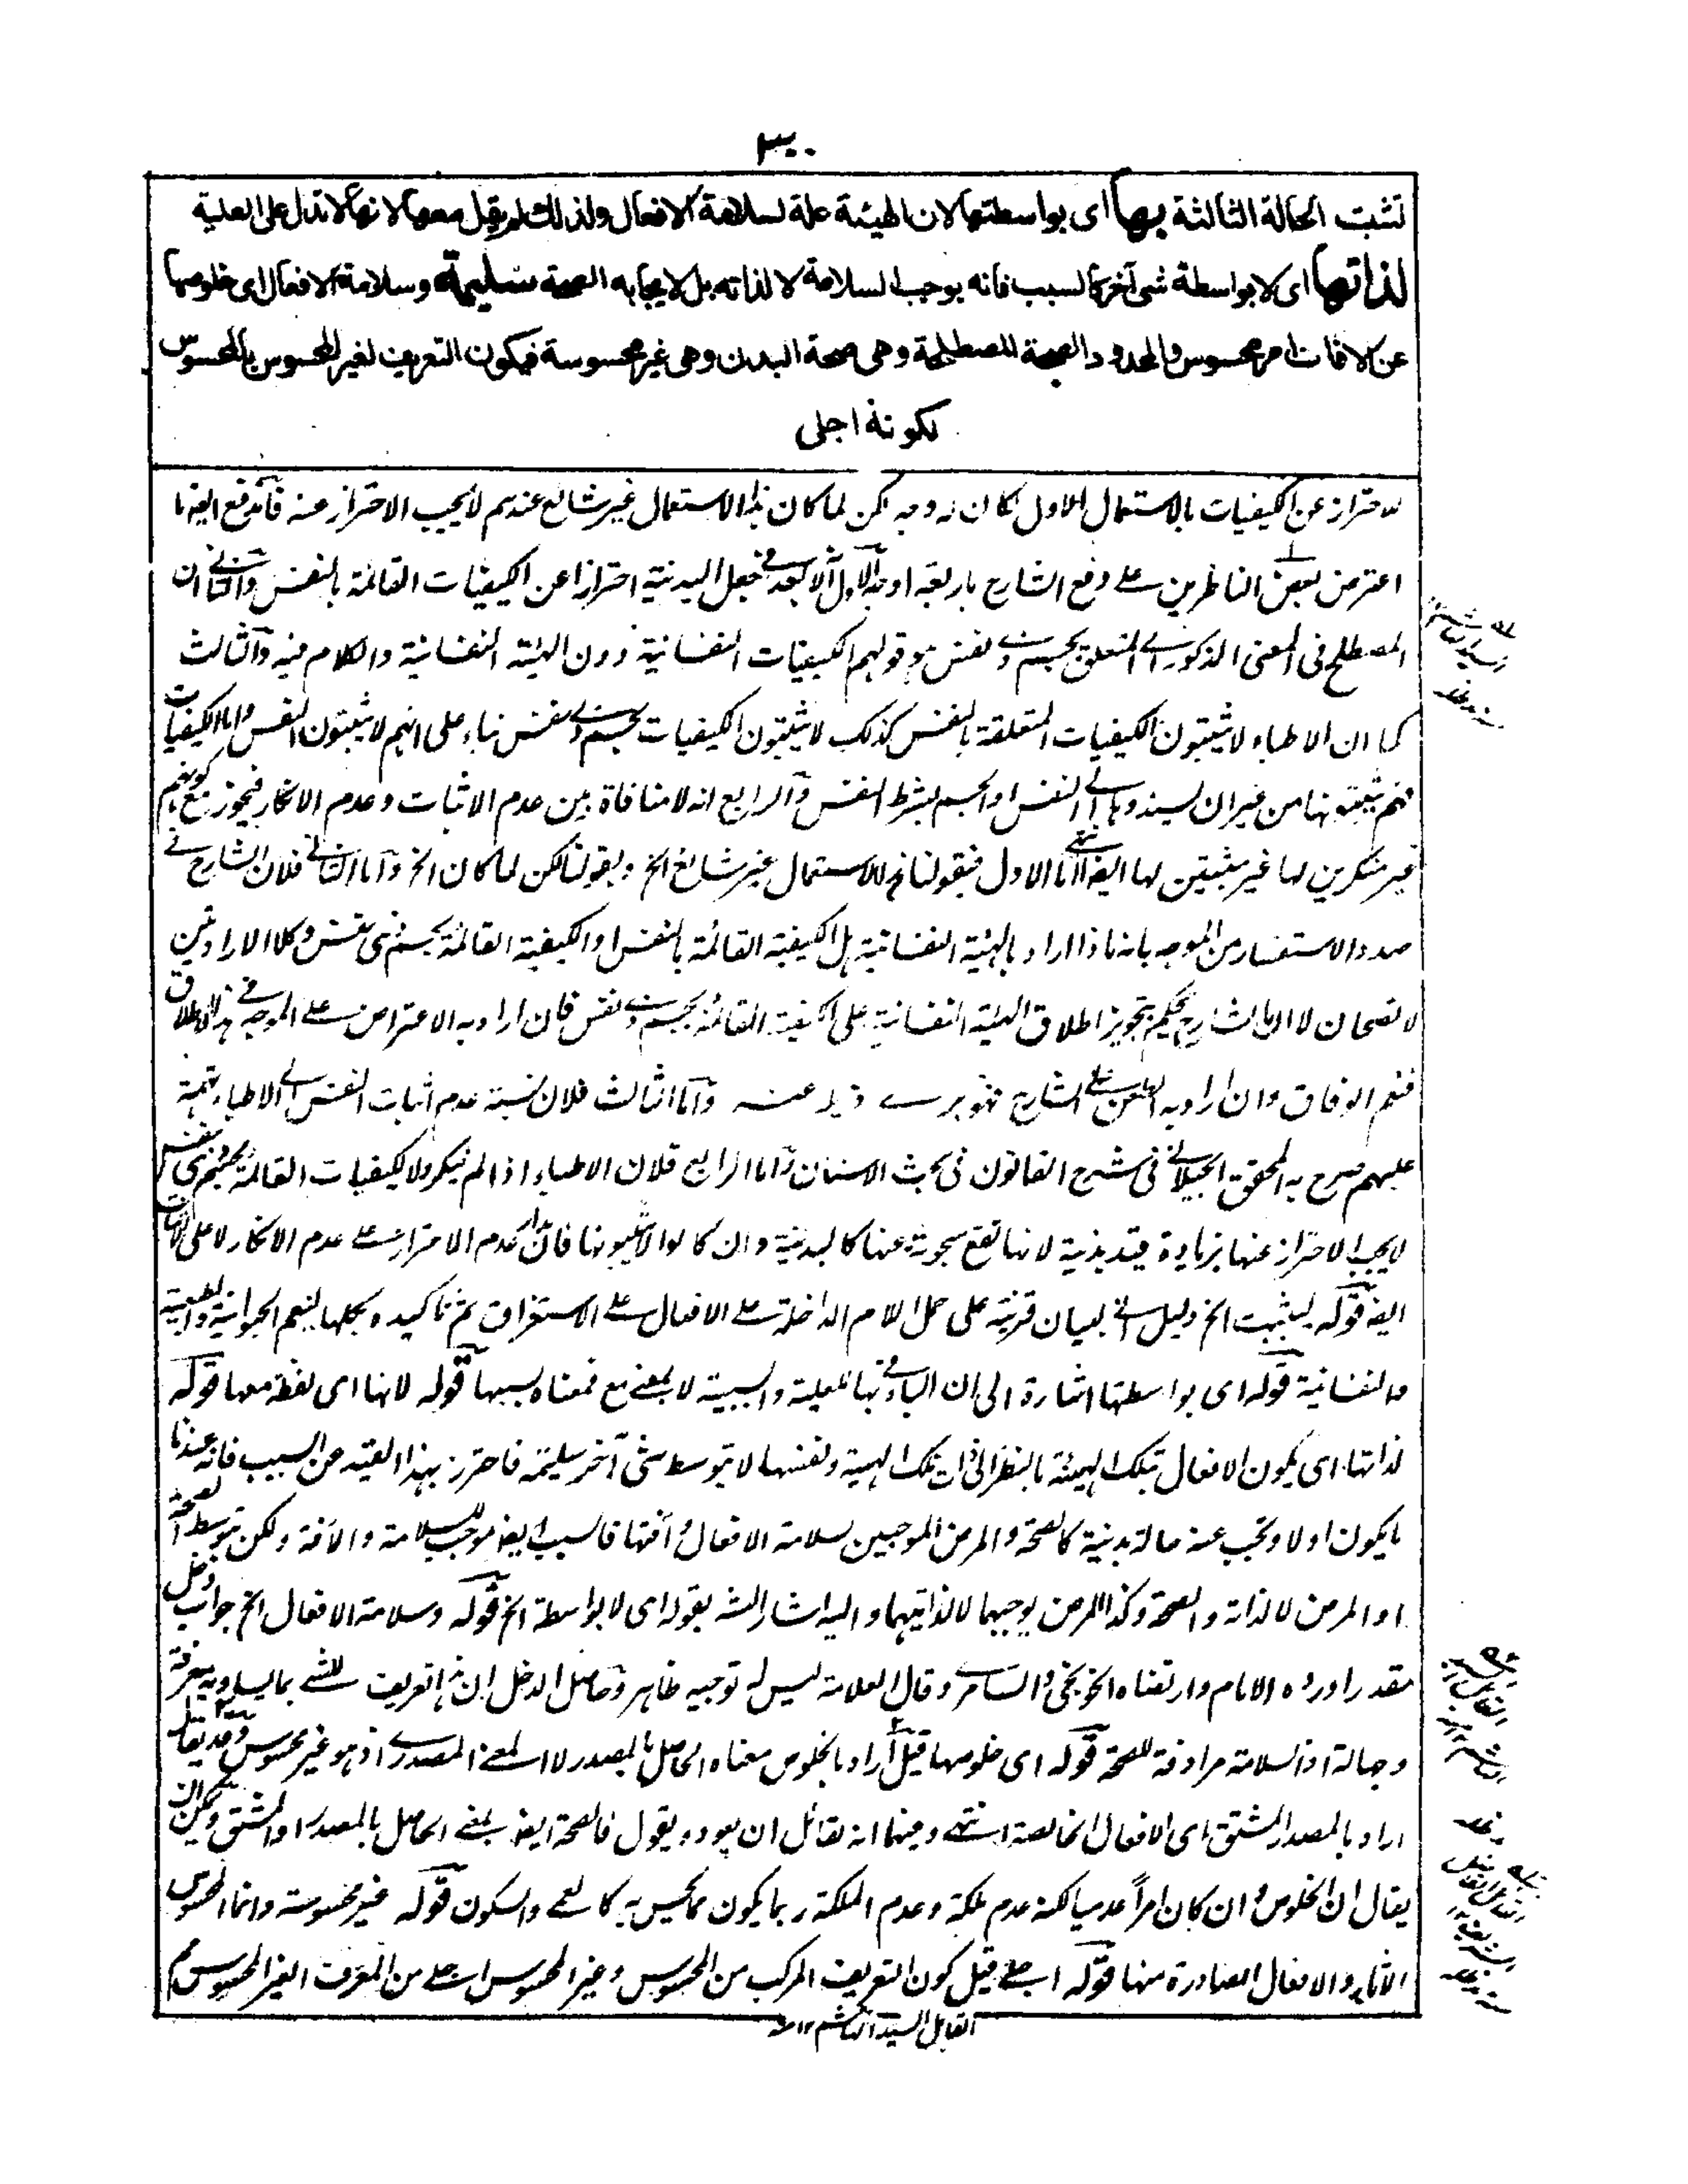 ٣٠٠
تثبت الحالة الثالثة بها اى بواسطتها لان الهيئة علة لسلامة الافعال ولذلك لم يقل معها لانها لا تدل على العلية
لذاتها اى لا بواسطة شىء آخر كالسبب فانه يوجب السلامة لا لذاته بل لايجابه الصحة سليمة وسلامة الافعال اى خلوصها
عن الآفات امر محسوس والمحدود الصحة المصطلحة وهى صحة البدن وهى غير محسوسة فيكون التعريف لغير المحسوس بالمحسوس
لكونه اجلى
للاحتراز عن الكيفيات بالاستعمال الاول لكان له وجه لكن لما كان هذا الاستعمال غير شائع عندهم لا يجب الاحتراز عنه فاندفع ايضا ما
اعترض بعض الناظرين على دفع الشارح باربعة اوجه الاول لا بعد فى جعل البدنية احترازا عن الكيفيات القائمة بالنفس والثانى ان
المصطلح فى المعنى المذكور اى المتعلق بجسم ذى نفس هو قولهم الكيفيات النفسانية دون الهيئة النفسانية والكلام فيه والثالث
كما ان الاطباء لا يثبتون الكيفيات المتعلقة بالنفس كذلك لا يثبتون الكيفيات بجسم ذى نفس بناء على انهم لا يثبتون النفس واما الكيفيات
فهم يثبتونها من غير ان يسندوها الى النفس او الجسم بشرط النفس والرابع انه لا منافاة بين عدم الاثبات وعدم الانكار فيجوز مع كونهم
غير منكرين لها غير مثبتين لها ايضا انتهى اما الاول فبقولنا هذا الاستعمال غير شائع الخ وبقولنا لكن لما كان الخ واما الثانى فلان الشارح فى
صدد الاستفسار من الموجه بانه ماذا اراد بالهيئة النفسانية هل الكيفية القائمة بالنفس او الكيفية القائمة بجسم ذى نفس وكلا الارادتين
لا تصحان لا ان الشارح يحكم بتجويز اطلاق الهيئة النفسانية على الكيفية القائمة بجسم ذى نفس فان اراد به الاعتراض على الموجه فى هذا الاطلاق
فنعم الوفاق وان اراد به الطعن على الشارح فهو برىء عنه واما الثالث فلان نسبة عدم اثبات النفس الى الاطباء تهمة
عليهم صرح به المحقق الجيلانى فى شرح القانون فى بحث الاسنان واما الرابع فلان الاطباء اذا لم ينكروا الكيفيات القائمة بجسم ذى نفس
لا يجب الاحتراز عنها بزيادة قيد بدنية لانها تقع مبحوثة عنها كالبدنية وان كانوا لا يثبتونها فان مدار عدم الاحتراز على عدم الانكار لا على الاثبات
ايضا قوله ليثبت الخ دليل لبيان قرينة على حمل اللام الداخلة على الافعال على الاستغراق ثم تاكيده بكلها ليعم الحيوانية والطبيعية
والنفسانية قوله اى بواسطتها اشارة الى ان الباء فى بها للعلية والسببية لا بمعنى مع فمعناه بسببها قوله لانها اى لفظة معها قوله
لذاتها اى يكون الافعال بتلك الهيئة بالنظر الى ذات تلك الهيئة ونفسها لا بتوسط شىء آخر سليمة فاحترز بهذا القيد عن السبب فانه عندنا
ما يكون اولا وتجب عنه حالة بدنية كالصحة والمرض الموجبين لسلامة الافعال وآفتها فالسبب ايضا موجب للسلامة والآفة ولكن بتوسط الصحة
او المرض لا لذاته والصحة وكذا المرض يوجبهما لذاتيهما واليه اشار الشارح بقوله اى لا بواسطة الخ قوله وسلامة الافعال الخ جواب دخل
مقدر اورده الامام وارتضاه الخونجى والسامرى وقال العلامة ليس له توجيه ظاهر وحاصل الدخل ان هذا تعريف للشىء بما يساويه معرفة
وجهالة اذ السلامة مرادفة للصحة قوله اى خلوصها قيل اراد بالخلوص معناه الحاصل بالمصدر لا المعنى المصدرى اذ هو غير محسوس وقد يقال
اراد بالمصدر المشتق اى الافعال الخالصة انتهى وفيهما انه لقائل ان يعود ويقول فالصحة ايضا بمعنى الحاصل بالمصدر او المشتق ويمكن ان
يقال ان الخلوص وان كان امرا عدميا لكنه عدم ملكة وعدم الملكة ربما يكون مما يحس به كالعمى والسكون قوله غير محسوسة وانما المحسوس
الآثار والافعال الصادرة منها قوله اجلى قيل كون التعريف المركب من المحسوس وغير المحسوس اجلى من المعرف الغير المحسوس
القائل السيد الهاشم ١٢ منه